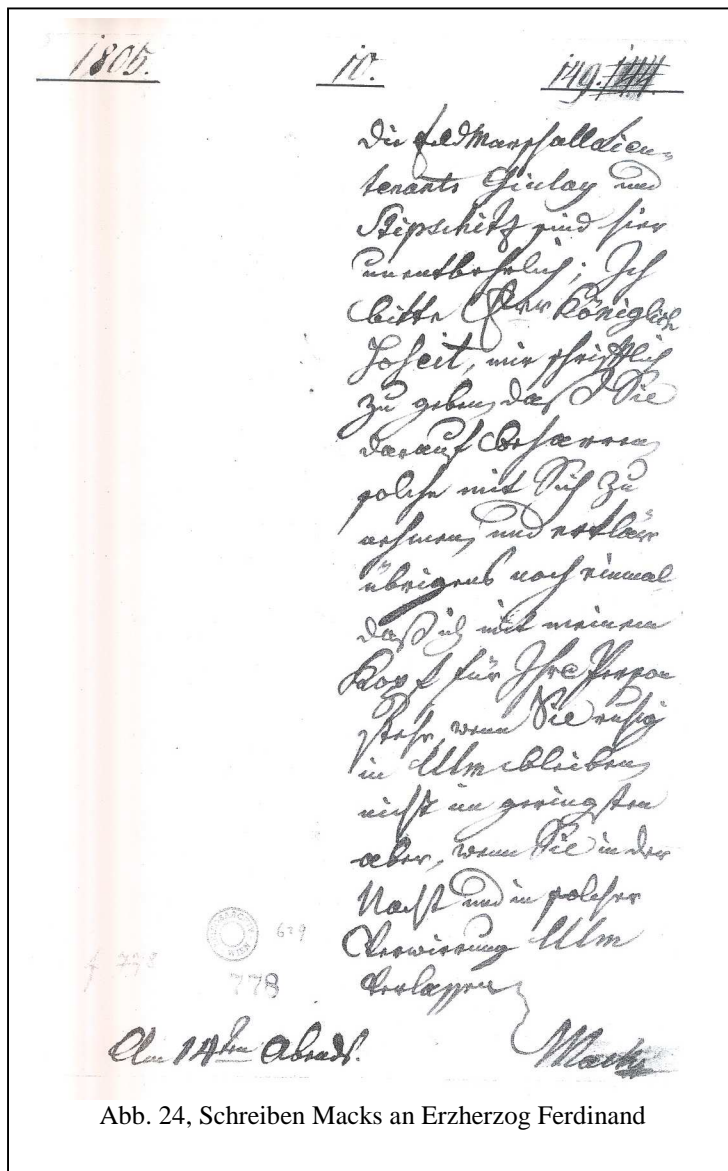 1805. 10. 149. 144.
Die FeldMarschallLieu-
tenants Giulay und
Stipschitz sind hier
unentbehrlich; Ich
bitte Euer Königliche
Hoheit, mir schriftlich
zu geben, daß Sie
darauf beharren,
solche mit Sich zu
nehmen, und erklär
übrigens noch einmal
daß ich mit meinem
Kopf für Ihre Person
stehe, wenn Sie ruhig
in Ulm bleiben,
nicht im geringsten
aber, wenn Sie in der
Nacht und in solcher
Verwirrung Ulm
verlassen
629
f 778
778
Am 14ten Abends.
Mack
Abb. 24, Schreiben Macks an Erzherzog Ferdinand